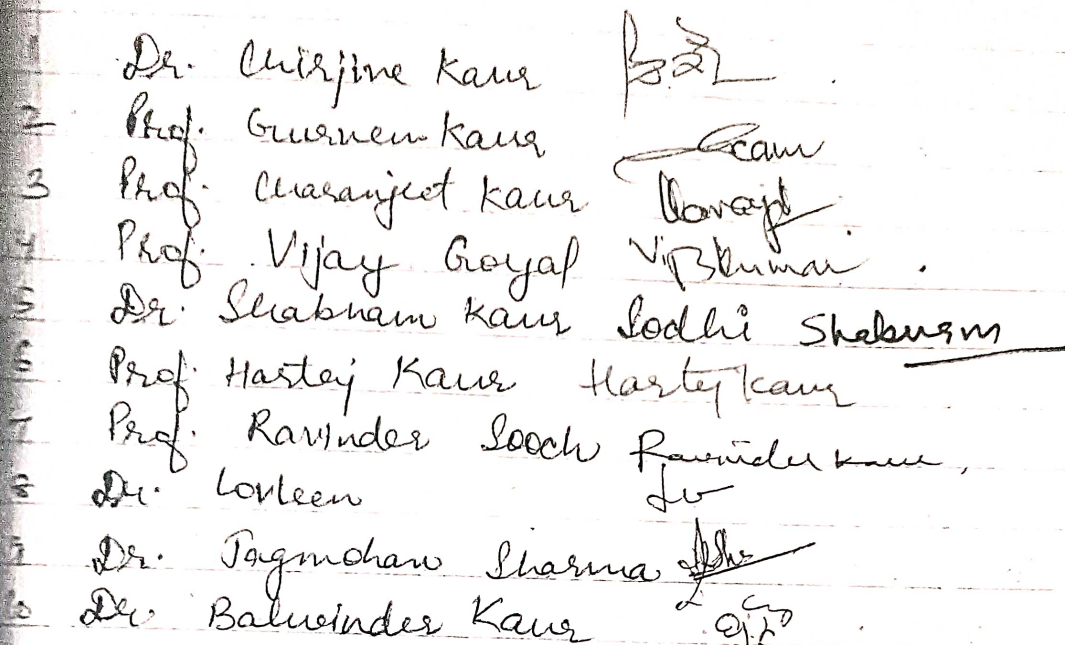 1 Dr. Chirjine Kaur
2 Prof. Gurnem Kaur Kaur
3 Prof. Charanjeet Kaur Charanjit
4 Prof. Vijay Goyal Vijay Kumar
5 Dr. Shabnam Kaur Sodhi Shabnam
6 Prof. Hartej Kaur Hartej Kaur
7 Prof. Ravinder Sooch Ravinder Kaur,
8 Dr. Lovleen
9 Dr. Jagmohan Sharma
10 Dr. Balwinder Kaur